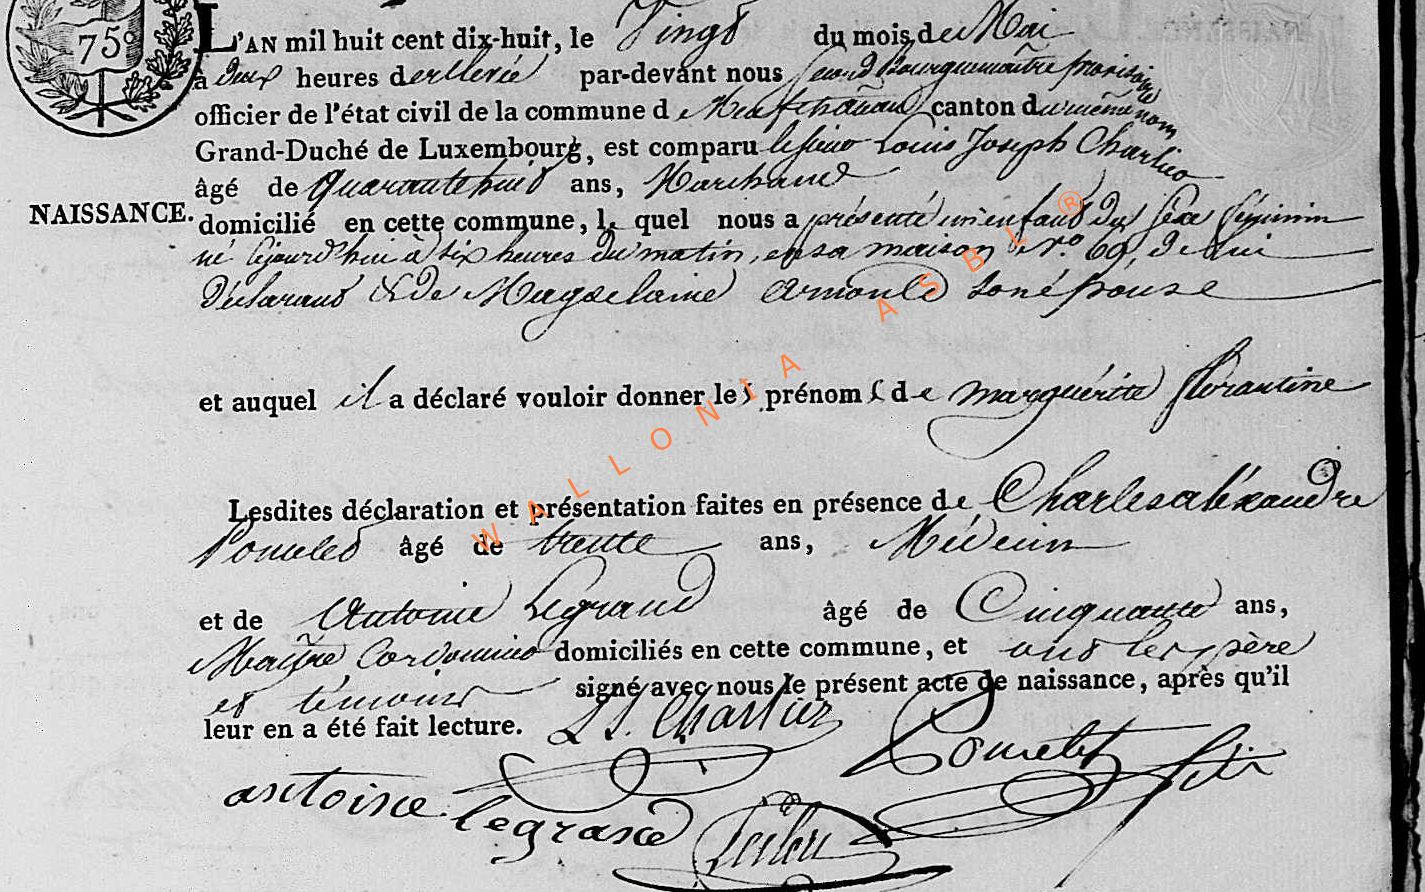 75c
L'AN mil huit cent dix-huit, le Vingt du mois de Mai
à deux heures de relevée par-devant nous second Bourguemaître provisoire
officier de l'état civil de la commune de Neufchâteau canton du même nom
Grand-Duché de Luxembourg, est comparu le sieur Louis Joseph Charlier
âgé de quarante huit ans, Marchand
NAISSANCE.
domicilié en cette commune, le quel nous a présenté un enfant du sexe féminin
né cejourd'hui à six heures du matin, en sa maison Nro 69, de lui
Déclarant & de Magdelaine Arnould son épouse
et auquel il a déclaré vouloir donner les prénoms de marguérite florantine
Lesdites déclaration et présentation faites en présence de Charles aléxandre
Pouclet âgé de trente ans, Médecin
et de Antoine Legrand âgé de Cinquante ans,
Maître Cordonnier domiciliés en cette commune, et ont les père
et témoins signé avec nous le présent acte de naissance, après qu'il
leur en a été fait lecture. L J. Charlier
antoine legrand
WALLONIA ASBL ®